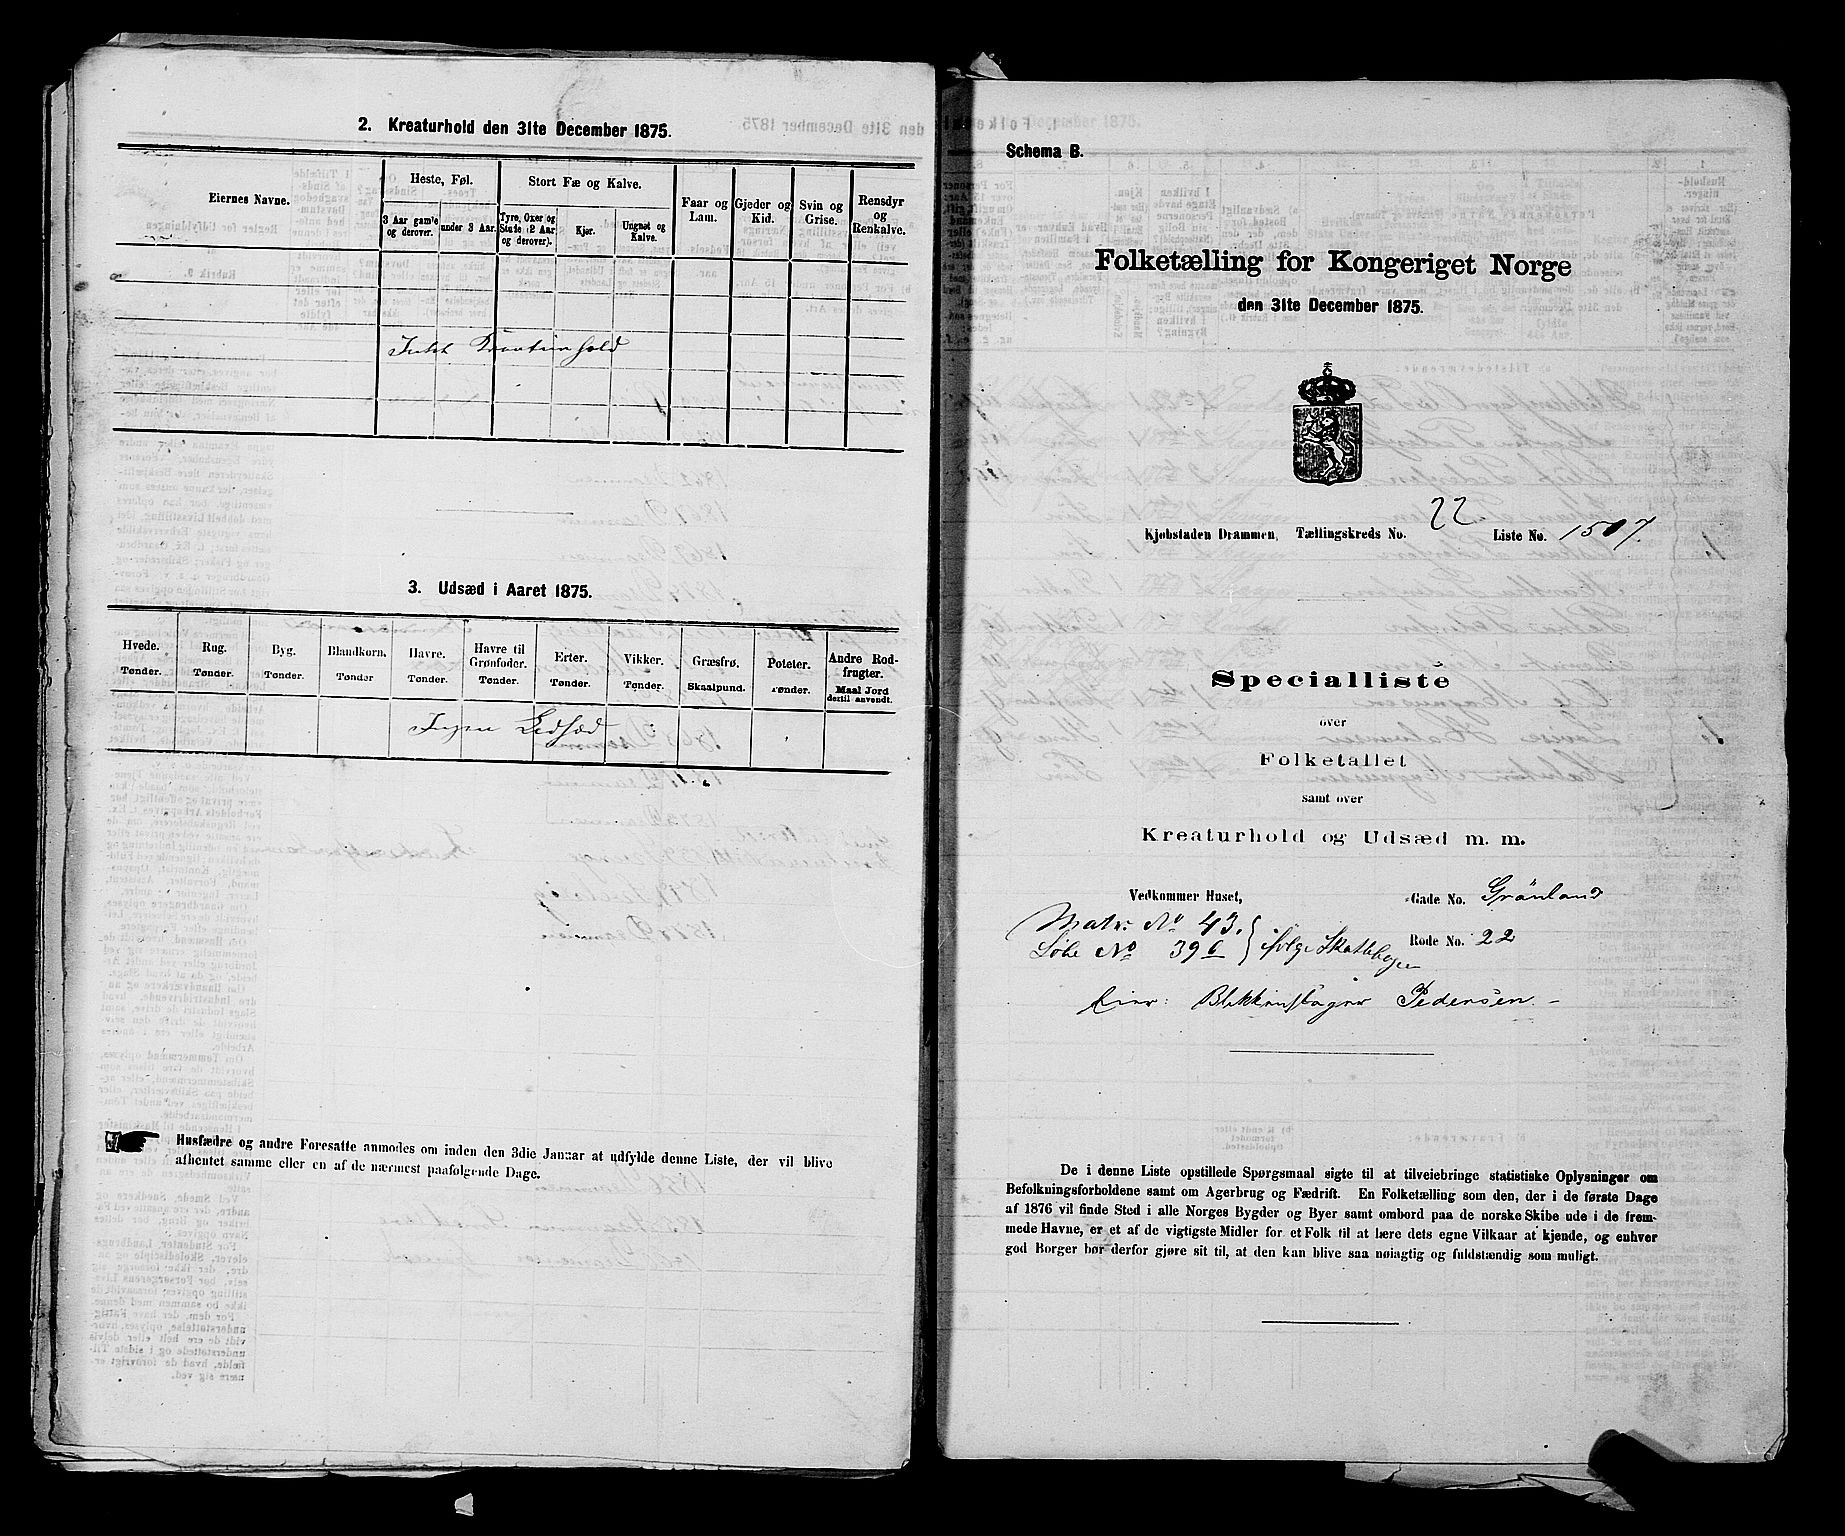 2. Kreaturhold den 31te December 1875.
Eiernes Navne.
Heste, Føl.
Stort Fæ og Kalve.
Faar og Lam.
Gjeder og Kid.
Svin og Grise.
Rensdyr og Renkalve.
3 Aar gamle og derover.
under 3 Aar.
Tyre, Oxer og Stude (2 Aar og derover).
Kjør.
Ungnøt og Kalve.
Intet Kreaturhold
3. Udsæd i Aaret 1875.
Hvede. Tønder.
Rug. Tønder.
Byg. Tønder.
Blandkorn. Tønder
Havre. Tønder.
Havre til Grønfoder. Tønder.
Erter. Tønder.
Vikker. Tønder.
Græsfrø. Skaalpund.
Poteter. Tønder.
Andre Rodfrugter. Maal Jord dertil anvendt.
Ingen Udsæd
Husfædre og andre Foresatte anmodes om inden den 3die Januar at udfylde denne Liste, der vil blive
afhentet samme eller en af de nærmest paafølgende Dage.
Schema B.
Folketælling for Kongeriget Norge
den 31te December 1875.
Kjøbstaden Drammen, Tællingskreds No. 22 Liste No. 1507.
Specialliste
over
Folketallet
samt over
Kreaturhold og Udsæd m. m.
Vedkommer Huset, Gade No. Grönland
Matr. No 43. Rode No. 22
Löbe No 396 ifølge Skattebogen
Eier: Blikkenslager Pedersen.
De i denne Liste opstillede Spørgsmaal sigte til at tilveiebringe statistiske Oplysninger om
Befolkningsforholdene samt om Agerbrug og Fædrift. En Folketælling som den, der i de første Dage
af 1876 vil finde Sted i alle Norges Bygder og Byer samt ombord paa de norske Skibe ude i de frem-
mede Havne, er et af de vigtigste Midler for et Folk til at lære dets egne Vilkaar at kjende, og enhver
god Borger bør derfor gjøre sit til, at den kan blive saa nøiagtig og fuldstændig som muligt.